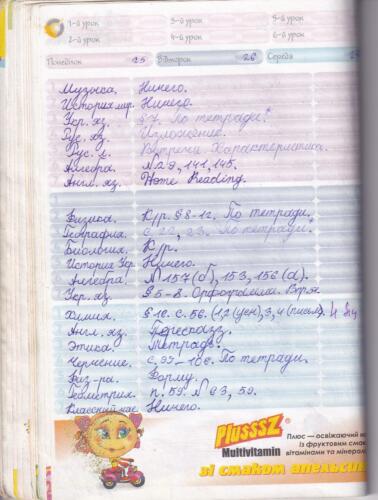 1-й урок 3-й урок 5-й урок
2-й урок 4-й урок 6-й урок
Понеділок 25 Вівторок 26 Середа
Музыка. Ничего.
История мир. Ничего.
Укр. яз. § 7. По тетради.
Рус. яз. Изложение.
Рус. л. Встречи. Характеристика.
Алгебра. №29, 141, 145.
Англ. яз. Home Reading.
Физика. Кур. § 8-12. По тетради.
География. с. 22, 23. По тетради.
Биология. Кур.
История Укр. Ничего.
Алгебра. №157(б), 153, 156(а).
Укр. яз. § 5-8. Орфограмма.
Химия. § 10. с. 56. (1,2(усн), 3,4(письм).
Англ. яз. Пересказ.
Этика. Тетрадь.
Черчение. с. 95-106. По тетради.
Физ-ра. Форму.
Геометрия. п. 59. № 53, 59.
Классный час. Ничего.
PlusssZ®
Multivitamin
Плюс — освіжаючий
Із фруктовим смак
вітамінами та мінерал
зі смаком апельсин